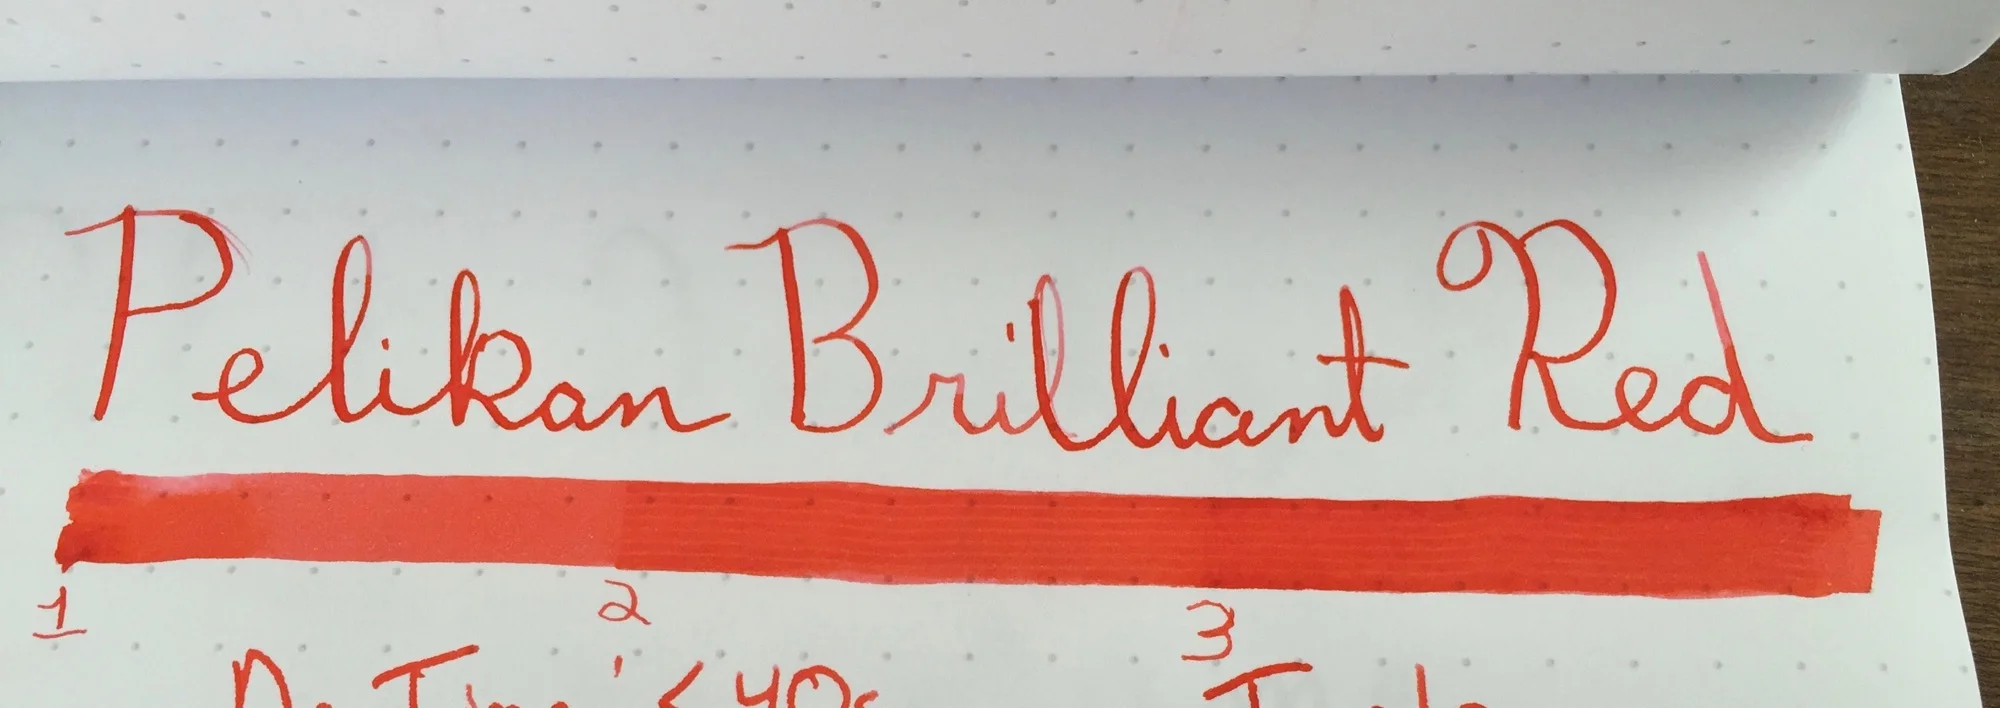 Pelikan Brilliant Red
1 2 3